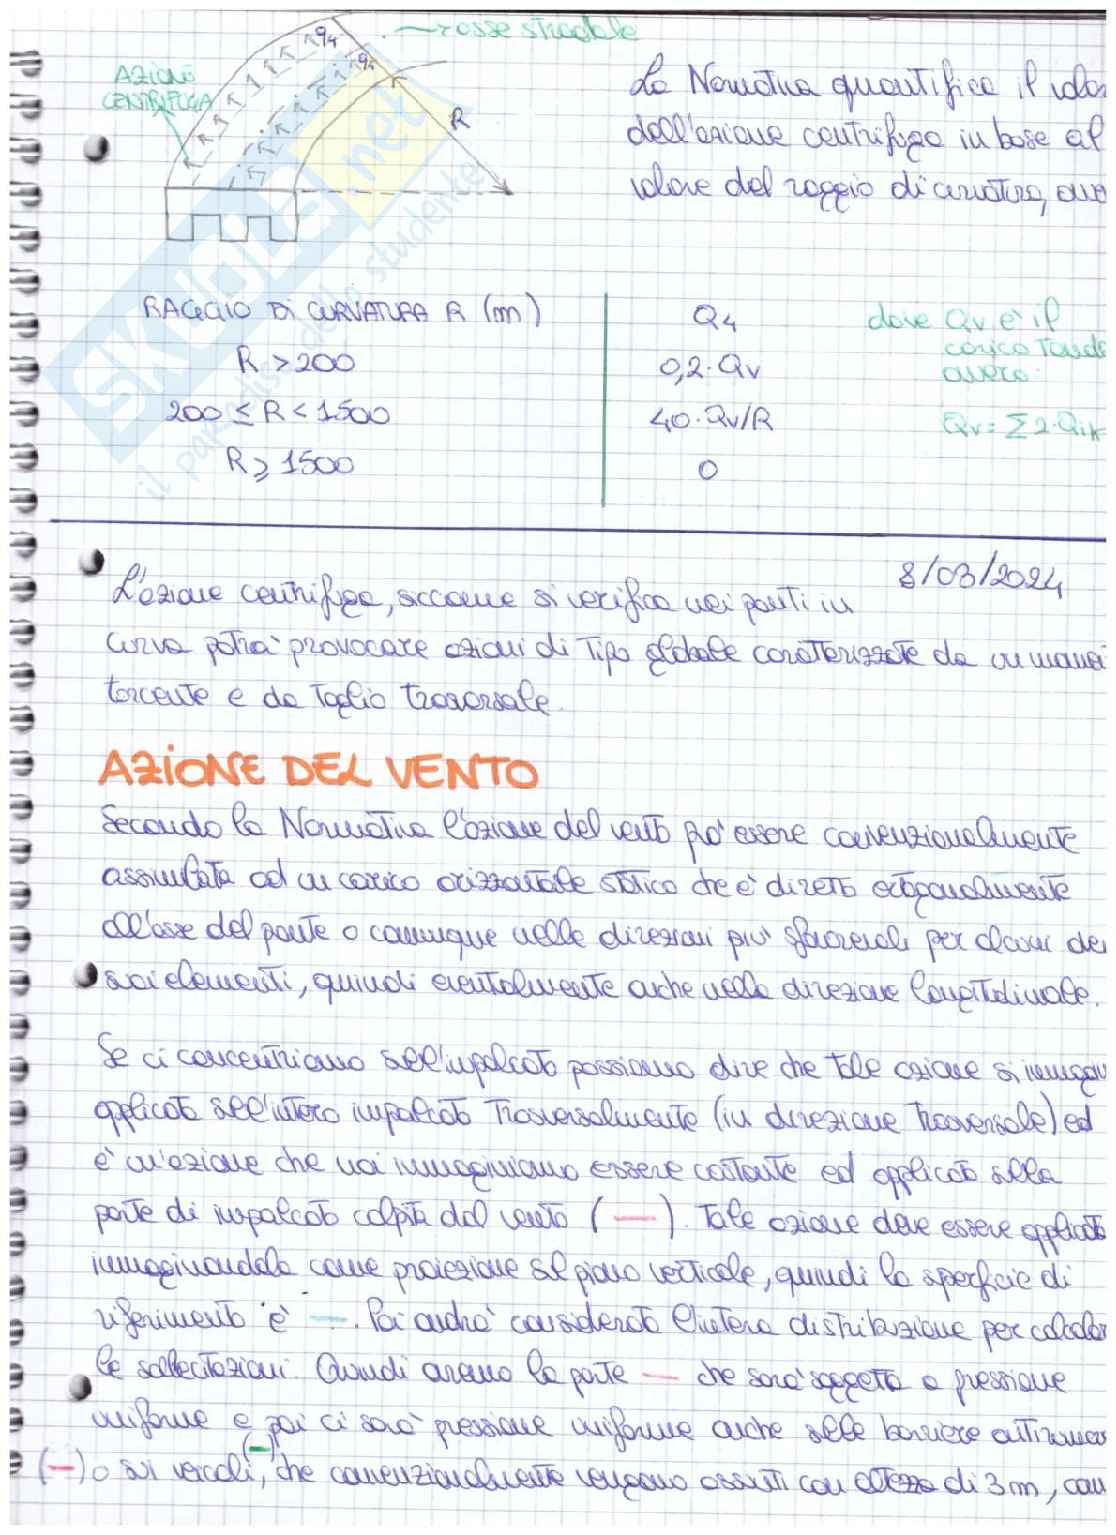 q4
q4
R
AZIONE
CENTRIFUGA
→ asse stradale
La Normativa quantifica il valor
dell'azione centrifuga in base al
valore del raggio di curvatura, ovv
RAGGIO DI CURVATURA R (m)
Q4
dove Qv è il
carico tande
ovvero:
R > 200
0,2·Qv
200 ≤ R < 1500
40·Qv/R
Qv = Σ2·Qik
R ⩾ 1500
0
8/03/2024
L'azione centrifuga, siccome si verifica nei ponti in
curva potrà provocare azioni di tipo globale caratterizzate da un momen
torcente e da taglio trasversale.
AZIONE DEL VENTO
Secondo la Normativa l'azione del vento può essere convenzionalmente
assimilata ad un carico orizzontale statico che è diretto ortogonalmente
all'asse del ponte o comunque nelle direzioni più sfavorevoli per alcuni dei
suoi elementi, quindi eventualmente anche nella direzione longitudinale.
Se ci concentriamo sull'impalcato possiamo dire che tale azione si immagin
applicata sull'intero impalcato trasversalmente (in direzione trasversale) ed
è un'azione che noi immaginiamo essere costante ed applicata sulla
parte di impalcato colpita dal vento ( — ). Tale azione deve essere applicata
immaginandola come proiezione sul piano verticale, quindi la superficie di
riferimento è — . Poi andrà considerata l'intera distribuzione per calcolar
le sollecitazioni. Quindi avremo la parte — che sarà soggetta a pressione
uniforme e poi ci sarà pressione uniforme anche sulle barriere antirumor
( — ) o sui veicoli ( — ), che convenzionalmente vengono assunti con altezza di 3 m, con
SKUOLA.net
il paradiso dello studente